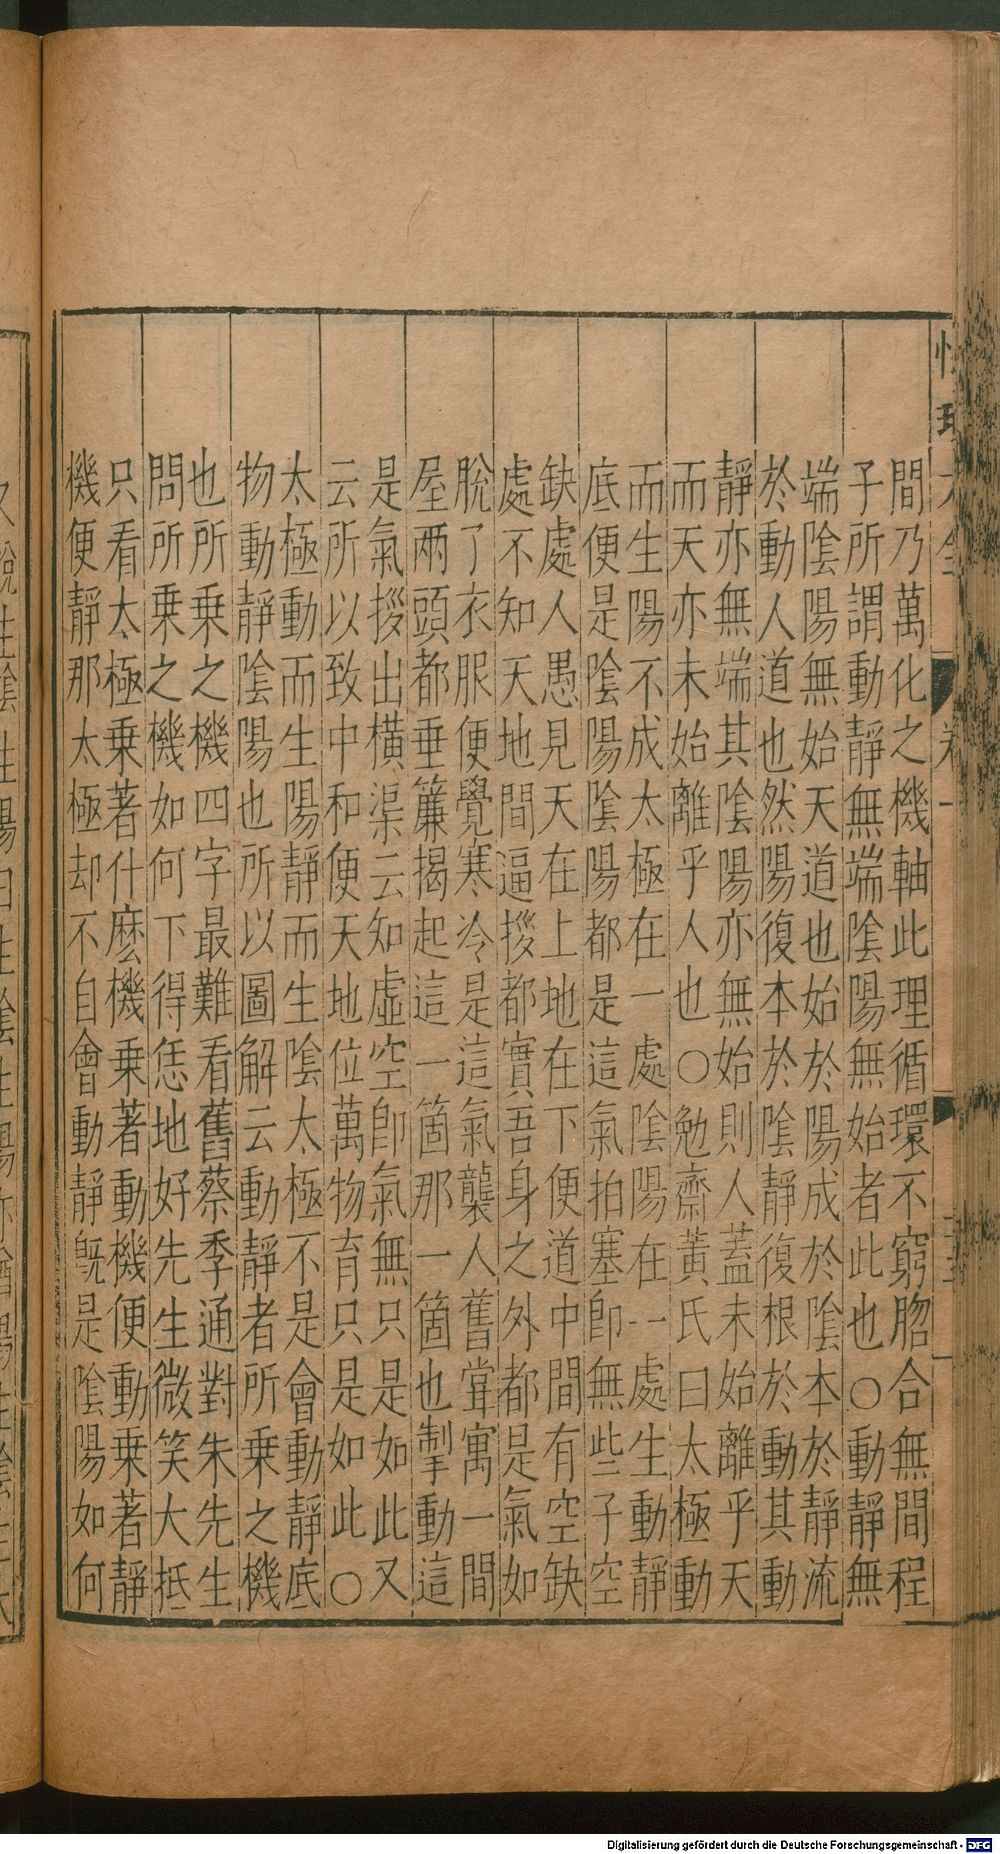 間乃萬化之機軸此理循環不窮脗合無間程
子所謂動靜無端隂陽無始者此也○動靜無
端隂陽無始天道也始於陽成於隂本於靜流
於動人道也然陽復本於隂靜復根於動其動
靜亦無端其隂陽亦無始則人蓋未始離乎天
而天亦未始離乎人也○勉齋黃氏曰太極動
而生陽不成太極在一處隂陽在一處生動靜
底便是隂陽隂陽都是這氣拍塞卽無些子空
缺處人愚見天在上地在下便道中間有空缺
處不知天地間逼拶都實吾身之外都是氣如
脫了衣服便覺寒冷是這氣襲人舊甞寓一間
屋兩頭都垂簾揭起這一箇那一箇也掣動這
是氣拶出橫渠云知虛空卽氣無只是如此又
云所以致中和便天地位萬物育只是如此○
太極動而生陽靜而生隂太極不是會動靜底
物動靜隂陽也所以圖解云動靜者所乗之機
也所乗之機四字最難看舊蔡季通對朱先生
問所乗之機如何下得恁地好先生微笑大抵
只看太極乗著什麽機乗著動機便動乗著靜
機便靜那太極却不自會動靜旣是隂陽如何
Digitalisierung gefördert durch die Deutsche Forschungsgemeinschaft - DFG